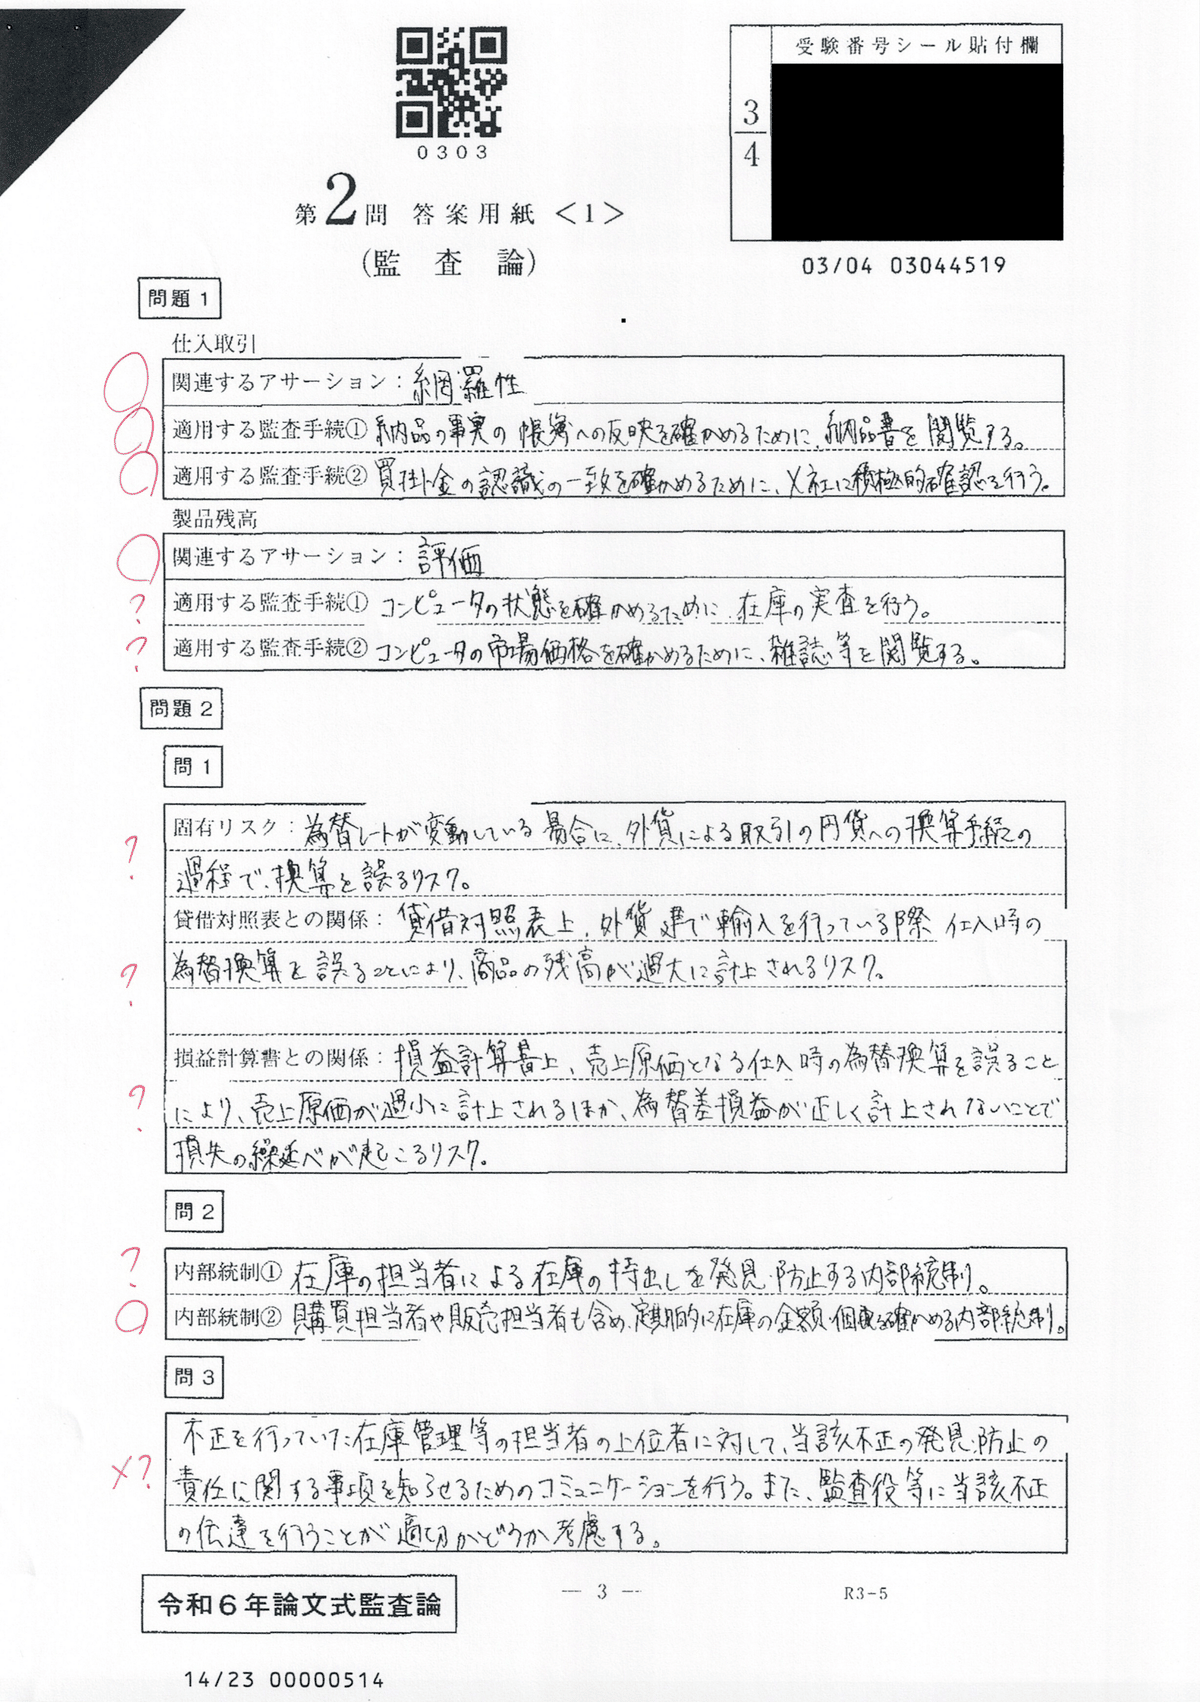 0303
受験番号シール貼付欄
3
4
第2問 答案用紙 <1>
(監 査 論)
03/04 03044519
問題1
仕入取引
関連するアサーション：網羅性
適用する監査手続① 納品の事実の帳簿への反映を確かめるために、納品書を閲覧する。
適用する監査手続② 買掛金の認識の一致を確かめるために、X社に積極的確認を行う。
製品残高
関連するアサーション：評価
適用する監査手続① コンピュータの状態を確かめるために、在庫の実査を行う。
適用する監査手続② コンピュータの市場価格を確かめるために、雑誌等を閲覧する。
?
?
問題2
問1
固有リスク：為替レートが変動している場合に、外貨による取引の円貨への換算手続の
過程で、換算を誤るリスク。
?
貸借対照表との関係：貸借対照表上、外貨建で輸入を行っている際、仕入時の
為替換算を誤ることにより、商品の残高が過大に計上されるリスク。
?
損益計算書との関係：損益計算書上、売上原価となる仕入時の為替換算を誤ること
により、売上原価が過小に計上されるほか、為替差損益が正しく計上されないことで
損失の繰延べが起こるリスク。
?
問2
?
内部統制① 在庫の担当者による在庫の持出しを発見・防止する内部統制。
内部統制② 購買担当者や販売担当者も含め、定期的に在庫の金額・個数を確かめる内部統制。
問3
不正を行っていた在庫管理等の担当者の上位者に対して、当該不正の発見・防止の
×? 責任に関する事項を知らせるためのコミュニケーションを行う。また、監査役等に当該不正
の伝達を行うことが適切かどうか考慮する。
— 3 —
R3-5
令和6年論文式監査論
14/23 00000514